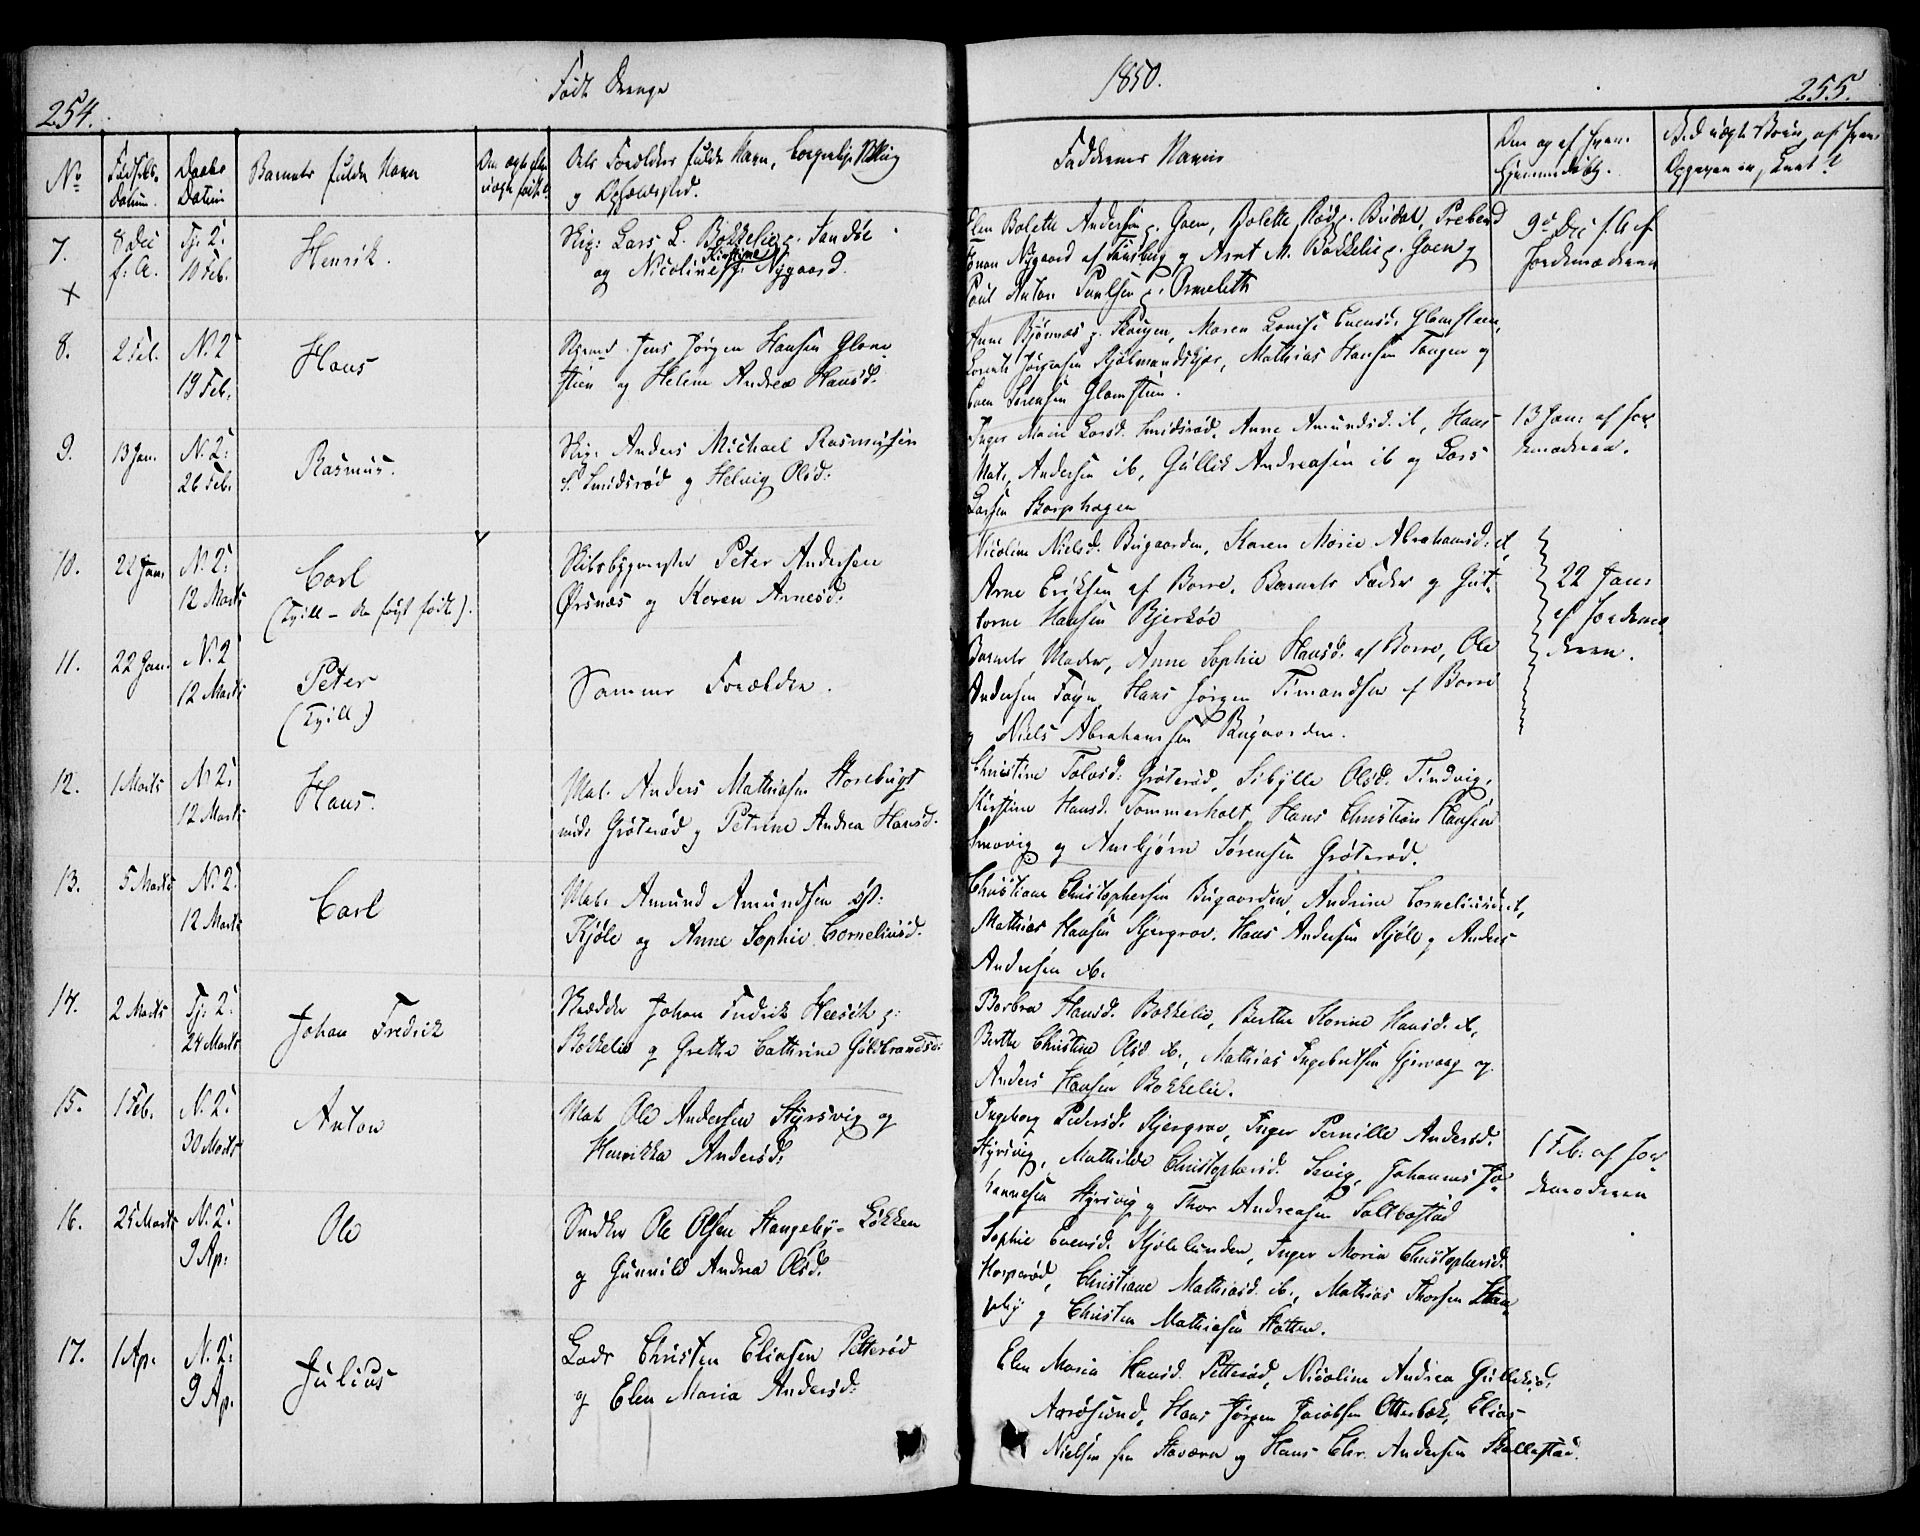 254.
Født Drenge
1850.
255.
No
Fødsels-
Datum.
Daabs
Datum
Barnets fulde Navn
Om ægte eller
uægte født?
Forældres fulde Navn, borgerlige Stilling
og Opholdssted.
Faddernes Navne
hjemmedøbt.
7.
8 Dec
f. A.
Tj: 2:
10 Feb.
Henrik.
Skip: Lars L. Bokkelie p. Sandø
Kirstine
og Nicoline p. Nygaard.
Elen Bolette Andersen p. Goen, Bolette Rød p. Budal, Preben
Nygaard af Tønsberg og Arnt M. Bokkelie p. Goen og
Poul Anton Paulsen p. Ormelett
9d Dec f. A. af
Jordemoderen
8.
2 Feb.
N. 2
19 Feb.
Hans
Jens Jørgen Hansen Glom-
stein og Helene Andrea Hansd.
Anne Bjønnes p. Skougen, Maren Lovise Evensd. Glomstein,
Lorents Jørgensen Kjølmandskjær, Mathias Hansen Tangen og
Even Sørensen Glomstein.
9.
13 Jan.
N. 2:
26 Feb.
Rasmus.
Skip: Anders Michael Rasmussen
S. Smidsrød og Helvig Olsd:
Inger Marie Larsd. Smidsrød, Anne Amundsd. ib, Hans
Mat. Andersen ib, Gullik Andreasen ib og Lars
Larsen Torphagen
13 Jan: af Jor-
demoderen.
10.
22 Jan.
N. 2:
12 Marts
Carl
(Tvill – den først født).
Skibsbygmester Peter Andersen
Ørsnes og Karen Arnesd:
Nicoline Nielsd. Bugaarden, Karen Marie Abrahamsd. ib,
Arne Eriksen af Borre, Barnets Fader og Gut-
torm Hansen Bjerkøe
22 Jan:
af Jordemo-
deren.
11.
22 Jan.
N. 2
12 Marts
Peter
(Tvill)
Samme Forældre.
Barnets Moder, Anne Sophie Hansd. af Borre, Ole
Andersen Føyn, Hans Jørgen Simondsen af Borre
og Niels Abrahamsen Bugaarden.
12.
1 Marts
N. 2:
12 Marts
Hans.
Mat. Anders Mathiasen Storebugt
Grøterød og Petrine Andrea Hansd.
Christine Tolvsd: Grøterød, Sibylle Olsd. Sundvig,
Kirstine Hansd. Tommerholt, Hans Christian Hansen
og Ansbjørn Sørensen Grøterød.
13.
5 Marts
N. 2:
12 Marts
Carl
Mat. Amund Amundsen
Kjøle og Anne Sophie Corneliusd.
Christiane Christophersen Bugaarden, Andrine Corneliusd. ib,
Mathias Hansen Kjergrav, Hans Andersen Kjøle og Anders
Andersen ib.
14.
2 Marts
Tj: 2:
24 Marts
Johan Fredrik
Skrædder Johan Fredrik p.
Bokkelie og Grethe Cathrine Guldbrandsd:
Barbra Hansd. Bokkelie, Berthe Karine Hansd. ib,
Berthe Christine Olsd ib, Mathias Ingebretsen og
Anders Hansen Bokkelie.
15.
1 Feb.
N. 2:
30 Marts
Anton
Mat. Ole Andersen Styrsvig og
Henrikka Andersd:
Ingeborg Pedersd. Kjergrav, Inger Pernille Andersd.
Styrsvig, Mathilde Christophersd. Sevig, Johannes Jo-
hannesen Styrsvig og Thor Andreasen Solbostad
1 Feb: af Jor-
demoderen
16.
25 Marts
N. 2:
9 Ap:
Ole
Snedker Ole Olsen Stangeby- Løkken
og Gunnild Andrea Olsd.
Sophie Evensd. Kjølelunden, Inger Maria Christophersd.
Horperød, Christiane Mathiasd. ib., Mathias Thorsen Stan-
geby og Christen Mathiasen Hotten.
17.
1 Ap.
N. 2:
9 Ap.
Julius
Lods Christen Eliasen Petterød
og Elen Maria Andersd:
Elen Maria Hansd. Petterød, Nicoline Andrea Gulliksd.
Arøsund, Hans Jørgen Jacobsen Otterbek, Elias
Nielsen fra Stavern og Hans Chr. Andersen Skallestad.